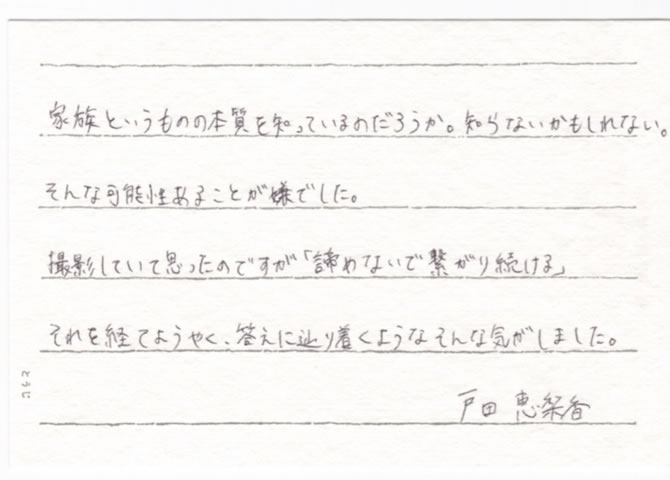 家族というものの本質を知っているのだろうか。知らないかもしれない。
そんな可能性あることが嫌でした。
撮影していて思ったのですが「諦めないで繋がり続ける」
それを経てようやく、答えに辿り着くようなそんな気がしました。
戸田 恵梨香